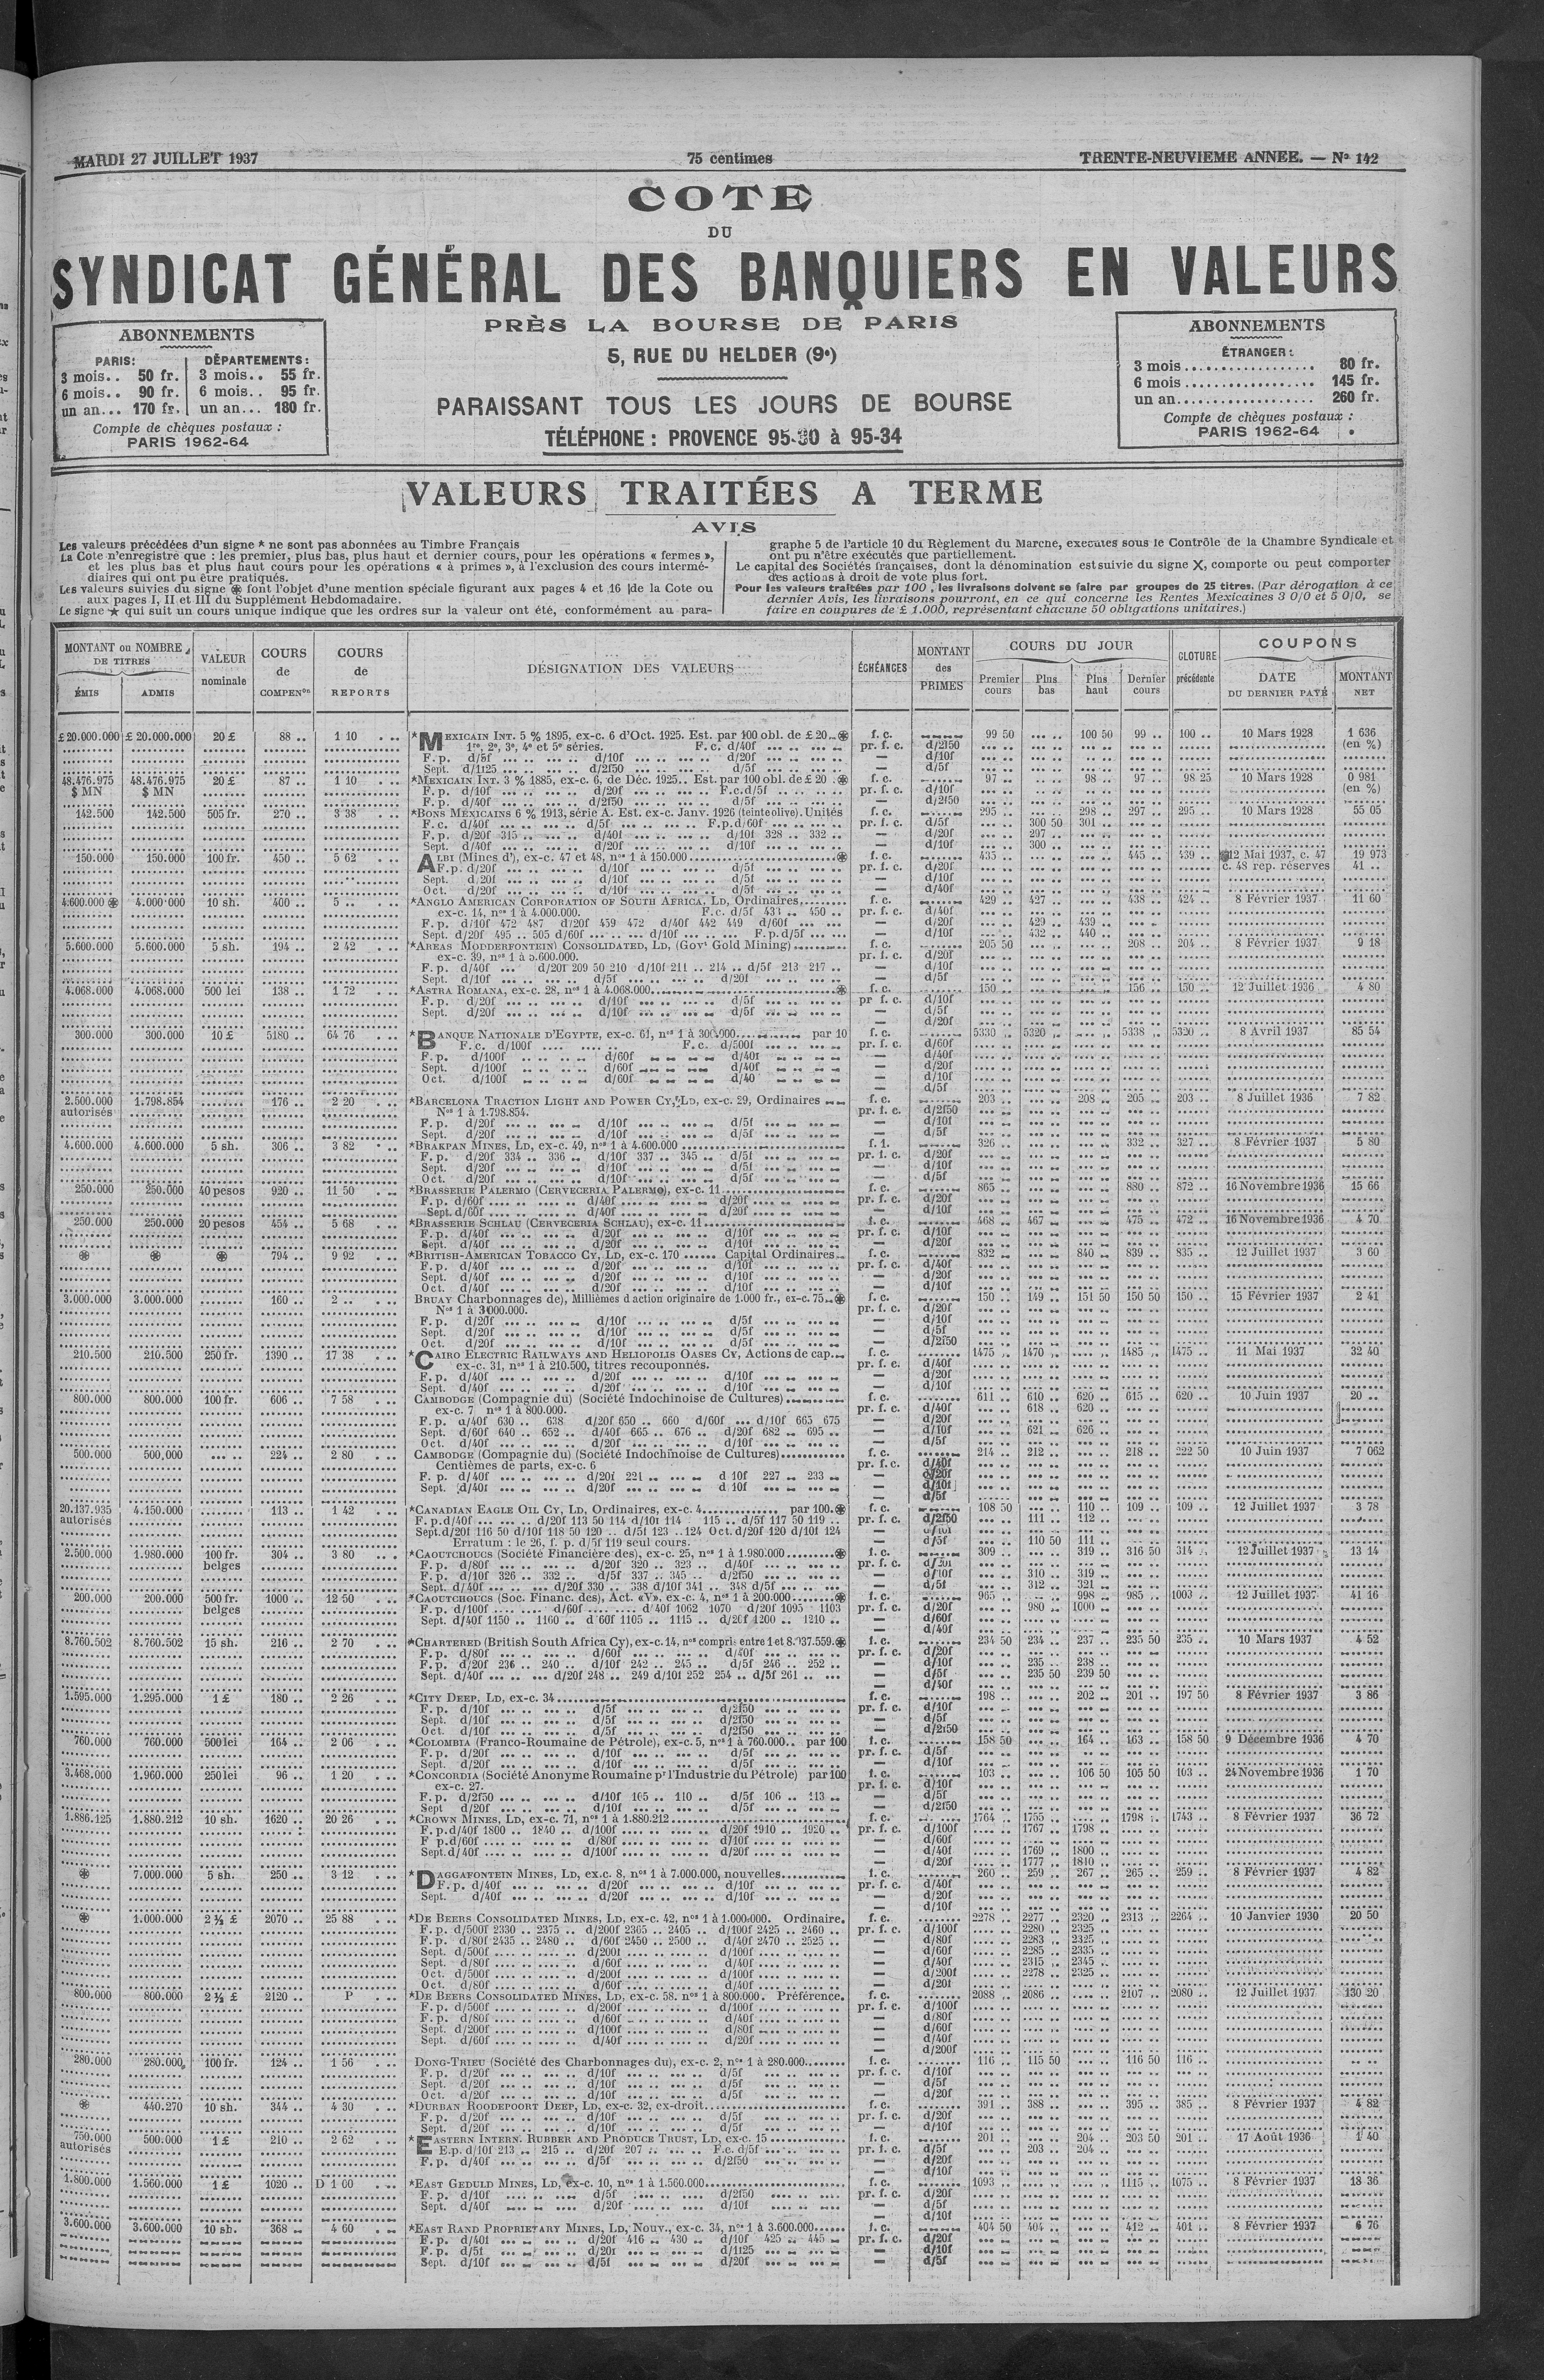 MARDI 27 JUILLET 1937 75 centimes TRENTE-NEUVIEME ANNEE. — No 142
COTE
DU
SYNDICAT GÉNÉRAL DES BANQUIERS EN VALEURS
PRÈS LA BOURSE DE PARIS
5, RUE DU HELDER (9e)
PARAISSANT TOUS LES JOURS DE BOURSE
TÉLÉPHONE : PROVENCE 95-30 à 95-34
ABONNEMENTS
PARIS: DÉPARTEMENTS:
3 mois.. 50 fr. 3 mois.. 55 fr.
6 mois.. 90 fr. 6 mois.. 95 fr.
un an... 170 fr. un an... 180 fr.
Compte de chèques postaux :
PARIS 1962-64
ABONNEMENTS
ÉTRANGER :
3 mois.................. 80 fr.
6 mois.................. 145 fr.
un an.................. 260 fr.
Compte de chèques postaux :
PARIS 1962-64
VALEURS TRAITÉES A TERME
AVIS
Les valeurs précédées d'un signe * ne sont pas abonnées au Timbre Français
La Cote n'enregistre que : les premier, plus bas, plus haut et dernier cours, pour les opérations « fermes »,
et les plus bas et plus haut cours pour les opérations « à primes », à l'exclusion des cours intermé-
diaires qui ont pu être pratiqués.
Les valeurs suivies du signe ⊛ font l'objet d'une mention spéciale figurant aux pages 4 et 16 de la Cote ou
aux pages I, II et III du Supplément Hebdomadaire.
Le signe ★ qui suit un cours unique indique que les ordres sur la valeur ont été, conformément au para-
graphe 5 de l'article 10 du Règlement du Marché, exécutés sous le Contrôle de la Chambre Syndicale et
ont pu n'être exécutés que partiellement.
Le capital des Sociétés françaises, dont la dénomination est suivie du signe X, comporte ou peut comporter
des actions à droit de vote plus fort.
Pour les valeurs traitées par 100, les livraisons doivent se faire par groupes de 25 titres. (Par dérogation à ce
dernier Avis, les livraisons pourront, en ce qui concerne les Rentes Mexicaines 3 0/0 et 5 0/0, se
faire en coupures de £ 1.000, représentant chacune 50 obligations unitaires.)
MONTANT ou NOMBRE DE TITRES
ÉMIS ADMIS
VALEUR nominale
COURS de COMPENon
COURS de REPORTS
DÉSIGNATION DES VALEURS
ÉCHÉANCES
MONTANT des PRIMES
COURS DU JOUR
Premier cours Plus bas Plus haut Dernier cours
CLOTURE précédente
COUPONS
DATE DU DERNIER PAYÉ MONTANT NET
£ 20.000.000 £ 20.000.000 20 £ 88 .. 1 10 *MEXICAIN INT. 5 % 1895, ex-c. 6 d'Oct. 1925. Est. par 100 obl. de £ 20..⊛ f. c. 99 50 ... .. 100 50 99 .. 100 .. 10 Mars 1928 1 636
1re, 2e, 3e, 4e et 5e séries. F. c. d/40f pr. f. c. d/2f50 (en %)
F. p. d/5f d/10f d/20f — d/10f
Sept. d/1f25 d/2f50 d/5f — d/5f
48.476.975 48.476.975 20 £ 87 .. 1 10 *MEXICAIN INT. 3 % 1885, ex-c. 6, de Déc. 1925.. Est. par 100 obl. de £ 20 .⊛ f. c. 97 .. 98 .. 97 .. 98 25 10 Mars 1928 0 981
$ MN $ MN F. p. d/10f d/20f F.c.d/5f pr. f. c. d/10f (en %)
F. p. d/40f d/2f50 d/5f — d/2f50
142.500 142.500 505 fr. 270 .. 3 38 *BONS MEXICAINS 6 % 1913, série A. Est. ex-c. Janv. 1926 (teinte olive). Unités f. c. 295 .. 298 .. 297 .. 295 .. 10 Mars 1928 55 05
F. c. d/40f d/5f F.p.d/60f pr. f. c. d/5f 300 50 301 ..
F. p. d/20f 315 .. d/40f d/10f 328 .. 332 .. — d/20f 297 ..
Sept. d/40f d/20f d/10f — d/10f 300 ..
150.000 150.000 100 fr. 450 .. 5 62 ALBI (Mines d'), ex-c. 47 et 48, nos 1 à 150.000 ⊛ f. c. 435 .. 445 .. 439 .. ⊛12 Mai 1937, c. 47 19 973
F.p. d/20f d/10f d/5f pr. f. c. d/20f c. 48 rep. réserves 41 ..
Sept. d/20f d/10f d/5f — d/10f
Oct. d/20f d/10f d/5f — d/40f
4.600.000 ⊛ 4.000.000 10 sh. 400 .. 5 .. *ANGLO AMERICAN CORPORATION OF SOUTH AFRICA, LD, Ordinaires, f. c. 429 .. 427 .. 438 .. 424 .. 8 Février 1937 11 60
ex-c. 14, nos 1 à 4.000.000. F.c. d/5f 431 .. 450 .. pr. f. c. d/40f
F. p. d/10f 472 487 d/20f 459 472 d/40f 442 449 d/60f — d/20f 429 .. 439 ..
Sept. d/20f 495 .. 505 d/60f d/10f F.p.d/5f — d/10f 432 .. 440 ..
5.600.000 5.600.000 5 sh. 194 .. 2 42 *AREAS (MODDERFONTEIN) CONSOLIDATED, LD, (Govt Gold Mining) f. c. 205 50 208 .. 204 .. 8 Février 1937 9 18
ex-c. 39, nos 1 à 5.600.000. pr. f. c. d/20f
F. p. d/40f d/20f 209 50 210 d/10f 211 .. 214 .. d/5f 213 217 .. — d/10f
Sept. d/10f d/5f d/20f — d/5f
4.068.000 4.068.000 500 lei 138 .. 1 72 *ASTRA ROMANA, ex-c. 28, nos 1 à 4.068.000 ⊛ f. c. 150 .. 156 .. 150 .. 12 Juillet 1936 4 80
F. p. d/20f d/10f d/5f pr f. c. d/10f
Sept. d/20f d/10f d/5f — d/5f
— d/20f
300.000 300.000 10 £ 5180 .. 64 76 *BANQUE NATIONALE D'EGYPTE, ex-c. 61, nos 1 à 300.000 par 10 f. c. 5330 .. 5320 .. 5338 .. 5320 .. 8 Avril 1937 85 54
F. c. d/100f F. c. d/500f pr. f. c. d/60f
F. p. d/100f d/60f d/40f — d/40f
Sept. d/100f d/60f d/40f — d/20f
Oct. d/100f d/60f d/40 — d/10f
— d/5f
2.500.000 1.798.854 176 .. 2 20 *BARCELONA TRACTION LIGHT AND POWER CY, LD, ex-c. 29, Ordinaires f. c. 203 .. 208 .. 205 .. 203 .. 8 Juillet 1936 7 82
autorisés Nos 1 à 1.798.854. pr. f. c. d/2f50
F. p. d/20f d/10f d/5f — d/10f
Sept. d/20f d/10f d/5f — d/5f
4.600.000 4.600.000 5 sh. 306 .. 3 82 *BRAKPAN MINES, LD, ex-c. 49, nos 1 à 4.600.000 f. f. 326 .. 332 .. 327 .. 8 Février 1937 5 80
F. p. d/20f 334 .. 336 .. d/10f 337 .. 345 .. d/5f pr. f. c. d/20f
Sept. d/20f d/10f d/5f — d/10f
Oct. d/20f d/10f d/5f — d/5f
250.000 250.000 40 pesos 920 .. 11 50 *BRASSERIE PALERMO (CERVECERIA PALERMO), ex-c. 11 f. c. 865 .. 880 .. 872 .. 16 Novembre 1936 15 66
F. p. d/60f d/40f d/20f pr. f. c. d/20f
Sept. d/60f d/40f d/20f — d/10f
250.000 250.000 20 pesos 454 .. 5 68 *BRASSERIE SCHLAU (CERVECERIA SCHLAU), ex-c. 11 f. c. 468 .. 467 .. 475 .. 472 .. 16 Novembre 1936 4 70
F. p. d/40f d/20f d/10f pr. f. c. d/10f
Sept. d/40f d/20f d/10f — d/20f
⊛ ⊛ ⊛ 794 .. 9 92 *BRITISH-AMERICAN TOBACCO CY, LD, ex-c. 170 ...... Capital Ordinaires f. c. 832 .. 840 .. 839 .. 835 .. 12 Juillet 1937 3 60
F. p. d/40f d/20f d/10f pr. f. c. d/40f
Sept. d/40f d/20f d/10f — d/20f
Oct. d/40f d/20f d/10f — d/10f
3.000.000 3.000.000 160 .. 2 .. BRUAY Charbonnages de), Millièmes d action originaire de 1.000 fr., ex-c. 75..⊛ f. c. 150 .. 149 .. 151 50 150 50 150 .. 15 Février 1937 2 41
Nos 1 à 3000.000. pr. f. c. d/20f
F. p. d/20f d/10f d/5f — d/10f
Sept. d/20f d/10f d/5f — d/5f
Oct. d/20f d/10f d/5f — d/2f50
210.500 210.500 250 fr. 1390 .. 17 38 *CAIRO ELECTRIC RAILWAYS AND HELIOPOLIS OASES CY, Actions de cap. f. c. 1475 .. 1470 .. 1485 .. 1475 .. 11 Mai 1937 32 40
ex-c. 31, nos 1 à 210.500, titres recouponnés. pr. f. c. d/40f
F. p. d/40f d/20f d/10f — d/20f
Sept. d/40f d/20f d/10f — d/10f
800.000 800.000 100 fr. 606 .. 7 58 CAMBODGE (Compagnie du) (Société Indochinoise de Cultures) f. c. 611 .. 610 .. 620 .. 615 .. 620 .. 10 Juin 1937 20 ..
ex-c. 7 nos 1 à 800.000. pr. f. c. d/40f 618 .. 620 ..
F. p. d/40f 630 .. 638 d/20f 650 .. 660 d/60f ... d/10f 665 675 — d/20f
Sept. d/60f 640 .. 652 .. d/40f 665 .. 676 .. d/20f 682 .. 695 .. — d/10f 621 .. 626 ..
Oct. d/40f d/20f d/10f — d/5f
500.000 500,000 224 .. 2 80 CAMBODGE (Compagnie du) (Société Indochinoise de Cultures) f. c. 214 .. 212 .. 218 .. 222 50 10 Juin 1937 7 062
Centièmes de parts, ex-c. 6 pr. f. c. d/40f
F. p. d/40f d/20f 221 .. d 10f 227 .. 233 .. — d/20f
Sept. d/40f d/20f d 10f — d/10f
— d/5f
20.137.935 4.150.000 113 .. 1 42 *CANADIAN EAGLE OIL CY, LD, Ordinaires, ex-c. 4 par 100.⊛ f. c. 108 50 110 .. 109 .. 109 .. 12 Juillet 1937 3 78
autorisés F. p.d/40f d/20f 113 50 114 d/10f 114 115 .. d/5f 117 50 119 .. pr. f. c. d/2f50 111 .. 112 ..
Sept.d/20f 116 50 d/10f 118 50 120 .. d/5f 123 ..124 Oct.d/20f 120 d/10f 124 — d/10f
Erratum : le 26, f. p. d/5f 119 seul cours. — d/5f 110 50 111 ..
2.500.000 1.980.000 100 fr. 304 .. 3 80 *CAOUTCHOUCS (Société Financière des), ex-c. 25, nos 1 à 1.980.000 ⊛ f. c. 309 .. 319 .. 316 50 314 .. 12 Juillet 1937 13 14
belges F. p. d/80f d/20f 320 .. 323 .. d/40f pr. f. c.
F. p. d/10f 326 .. 332 .. d/5f 337 .. 345 .. d/2f50 — d/10f 310 .. 319 ..
Sept. d/40f d/20f 330 .. 338 d/10f 341 .. 348 d/5f — d/5f 312 .. 321 ..
200.000 200.000 500 fr. 1000 .. 12 50 *CAOUTCHOUCS (Soc. Financ. des), Act. «V», ex-c. 4, nos 1 à 200.000 ⊛ f. c. 965 .. 998 .. 985 .. 1003 .. 12 Juillet 1937 41 16
belges F. p. d/100f d/60f d/40f 1062 1070 d/20f 1095 1103 pr. f. c. d/20f 980 .. 1000 ..
Sept. d/40f 1150 .. 1160 .. d 60f 1105 .. 1115 .. d/20f 1200 .. 1210 .. — d/60f
— d/40f
8.760.502 8.760.502 15 sh. 216 .. 2 70 *CHARTERED (British South Africa Cy), ex-c. 14, nos compris entre 1 et 8.937.559.⊛ f. c. 234 50 234 .. 237 .. 235 50 235 .. 10 Mars 1937 4 52
F. p. d/80f d/60f d/40f pr. f. c. d/20f
F. p. d/20f 236 .. 240 .. d/10f 242 .. 245 .. d/5f 246 .. 252 .. — d/10f 235 .. 238 ..
Sept. d/40f d/20f 248 .. 249 d/10f 252 254 .. d/5f 261 .. — d/5f 235 50 239 50
— d/40f
1.595.000 1.295.000 1 £ 180 .. 2 26 *CITY DEEP, LD, ex-c. 34 f. c. 198 .. 202 .. 201 .. 197 50 8 Février 1937 3 86
F. p. d/10f d/5f d/2f50 pr. f. c. d/10f
Sept. d/10f d/5f d/2f50 — d/5f
Oct. d/10f d/5f d/2f50 — d/2f50
760.000 760.000 500 lei 164 .. 2 06 *COLOMBIA (Franco-Roumaine de Pétrole), ex-c. 5, nos 1 à 760.000.. par 100 f. c. 158 50 164 .. 163 .. 158 50 9 Décembre 1936 4 70
F. p. d/20f d/10f d/5f pr. f. c. d/5f
Sept. d/20f d/10f d/5f — d/10f
3.468.000 1.960.000 250 lei 96 .. 1 20 *CONCORDIA (Société Anonyme Roumaine pr l'Industrie du Pétrole) par 100 f. c. 103 .. 106 50 105 50 103 .. 24 Novembre 1936 1 70
ex-c. 27. pr. f. c. d/10f
F. p. d/2f50 d/10f 105 .. 110 .. d/5f 106 .. 113 .. — d/5f
Sept d/20f d/10f d/5f — d/2f50
1.886.125 1.880.212 10 sh. 1620 .. 20 26 *CROWN MINES, LD, ex-c. 71, nos 1 à 1.880.212 f. c. 1764 .. 1755 .. 1798 .. 1743 .. 8 Février 1937 36 72
F. p.d/40f 1800 .. 1840 .. d/100f d/20f 1910 .. 1920 .. pr. f. c. d/100f 1767 .. 1798 ..
F p.d/60f d/80f d/10f — d/60f
Sept.d/40f d/100f d/20f — d/40f 1769 .. 1800 ..
— d/20f 1777 .. 1810 ..
⊛ 7.000.000 5 sh. 250 .. 3 12 *DAGGAFONTEIN MINES, LD, ex.c. 8, nos 1 à 7.000.000, nouvelles f. c. 260 .. 259 .. 267 .. 265 .. 259 .. 8 Février 1937 4 82
F. p. d/40f d/20f d/10f pr. f. c. d/40f
Sept. d/40f d/20f d/10f — d/20f
— d/10f
⊛ 1.000.000 2 ½ £ 2070 .. 25 88 *DE BEERS CONSOLIDATED MINES, LD, ex-c. 42, nos 1 à 1.000.000. Ordinaire. f. c. 2278 .. 2277 .. 2320 .. 2313 .. 2264 .. 10 Janvier 1930 20 50
F. p. d/500f 2330 .. 2375 .. d/200f 2365 .. 2405 .. d/100f 2425 .. 2460 .. pr. f. c. d/100f 2280 .. 2325 ..
F. p. d/80f 2435 .. 2480 .. d/60f 2450 .. 2500 .. d/40f 2470 .. 2525 .. — d/80f 2283 .. 2325 ..
Sept. d/500f d/200f d/100f — d/60f 2285 .. 2335 ..
Sept. d/80f d/60f d/40f — d/40f 2315 .. 2345 ..
Oct. d/500f d/200f d/100f — d/200f 2278 .. 2325 ..
Oct. d/80f d/60f d/40f — d/20f
800.000 800.000 2 ½ £ 2120 .. P *DE BEERS CONSOLIDATED MINES, LD, ex-c. 58. nos 1 à 800.000. Préférence. f. c. 2088 .. 2086 .. 2107 .. 2080 .. 12 Juillet 1937 130 20
F. p. d/500f d/200f d/100f pr. f. c. d/100f
F. p. d/80f d/60f d/40f — d/80f
Sept. d/200f d/100f d/80f — d/60f
Sept. d/60f d/40f d/20f — d/40f
— d/200f
280.000 280.000 100 fr. 124 .. 1 56 DONG-TRIEU (Société des Charbonnages du), ex-c. 2, nos 1 à 280.000 f. c. 116 .. 115 50 116 50 116 ..
F. p. d/20f d/10f d/5f pr. f. c. d/10f
Sept. d/20f d/10f d/5f — d/5f
Oct. d/20f d/10f d/5f — d/20f
⊛ 440.270 10 sh. 344 .. 4 30 *DURBAN ROODEPOORT DEEP, LD, ex-c. 32, ex-droit f. c. 391 .. 388 .. 395 .. 385 .. 8 Février 1937 4 82
F. p. d/20f d/10f d/5f pr. f. c. d/20f
Sept. d/20f d/10f d/5f — d/10f
750.000 500.000 1 £ 210 .. 2 62 *EASTERN INTERN. RUBBER AND PRODUCE TRUST, LD, ex-c. 15 f. c. 201 .. 204 .. 203 50 201 .. 17 Août 1936 1 40
autorisés F.p. d/10f 213 .. 215 .. d/20f 207 .. F.c. d/5f pr. f. c. d/5f 203 .. 204 ..
F. p. d/40f d/5f d/2f50 — d/20f
— d/10f
1.800.000 1.560.000 1 £ 1020 .. D 1 00 *EAST GEDULD MINES, LD, ex-c. 10, nos 1 à 1.560.000 f. c. 1093 .. 1115 .. 1075 .. 8 Février 1937 18 36
F. p. d/10f d/5f d/2f50 pr. f. c. d/20f
Sept. d/40f d/20f d/10f — d/5f
— d/10f
3.600.000 3.600.000 10 sh. 368 .. 4 60 *EAST RAND PROPRIETARY MINES, LD, Nouv., ex-c. 34, nos 1 à 3.600.000 f. c. 404 50 404 .. 412 .. 401 .. 8 Février 1937 6 76
F. p. d/40f d/20f 416 .. 430 .. d/10f 425 .. 445 .. pr. f. c. d/20f
F. p. d/5f d/20f d/1f25 — d/10f
Sept. d/10f d/5f d/20f — d/5f